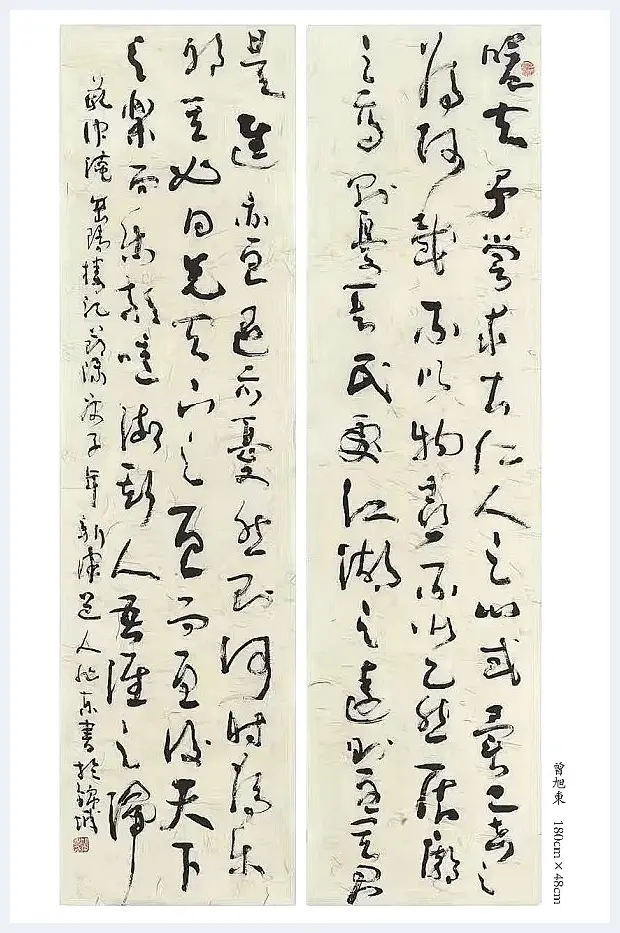 嗟夫予嘗求古仁人之心或異二者之
為何哉不以物喜不以己悲居廟
之高則憂其民處江湖之遠則憂其君
是進亦憂退亦憂然則何時為樂
耶其必曰先天下之憂而憂後天下
之樂而樂歟噫微斯人吾誰與歸
范仲淹岳陽樓記節錄庚子年新津邑人旭東書於錦城
曾旭東 180cm×48cm